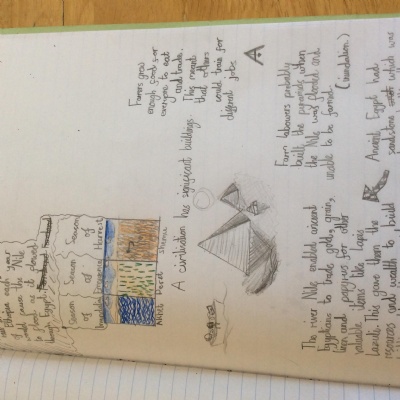 Ethiopia each year
would cause the Nile
to flood as it flowed
through Egypt.
Season Season Season
of of of
Inundation Harvest
Akhet Peret Shemu
Farmers grow
enough food for
everyone to eat
and trade.
This meant
that others
could train for
different jobs.
A civilisation has significant buildings
The river Nile enabled ancient
Egyptians to trade gold, grain,
linen and papyrus for other
valuable items like Lapis
Lazuli. This gave them the
resources and wealth to build
Farm labourers probably
built the pyramids when
the Nile was flooded and
unable to be farmed.
(inundation.)
Ancient Egypt had
sandstone which was